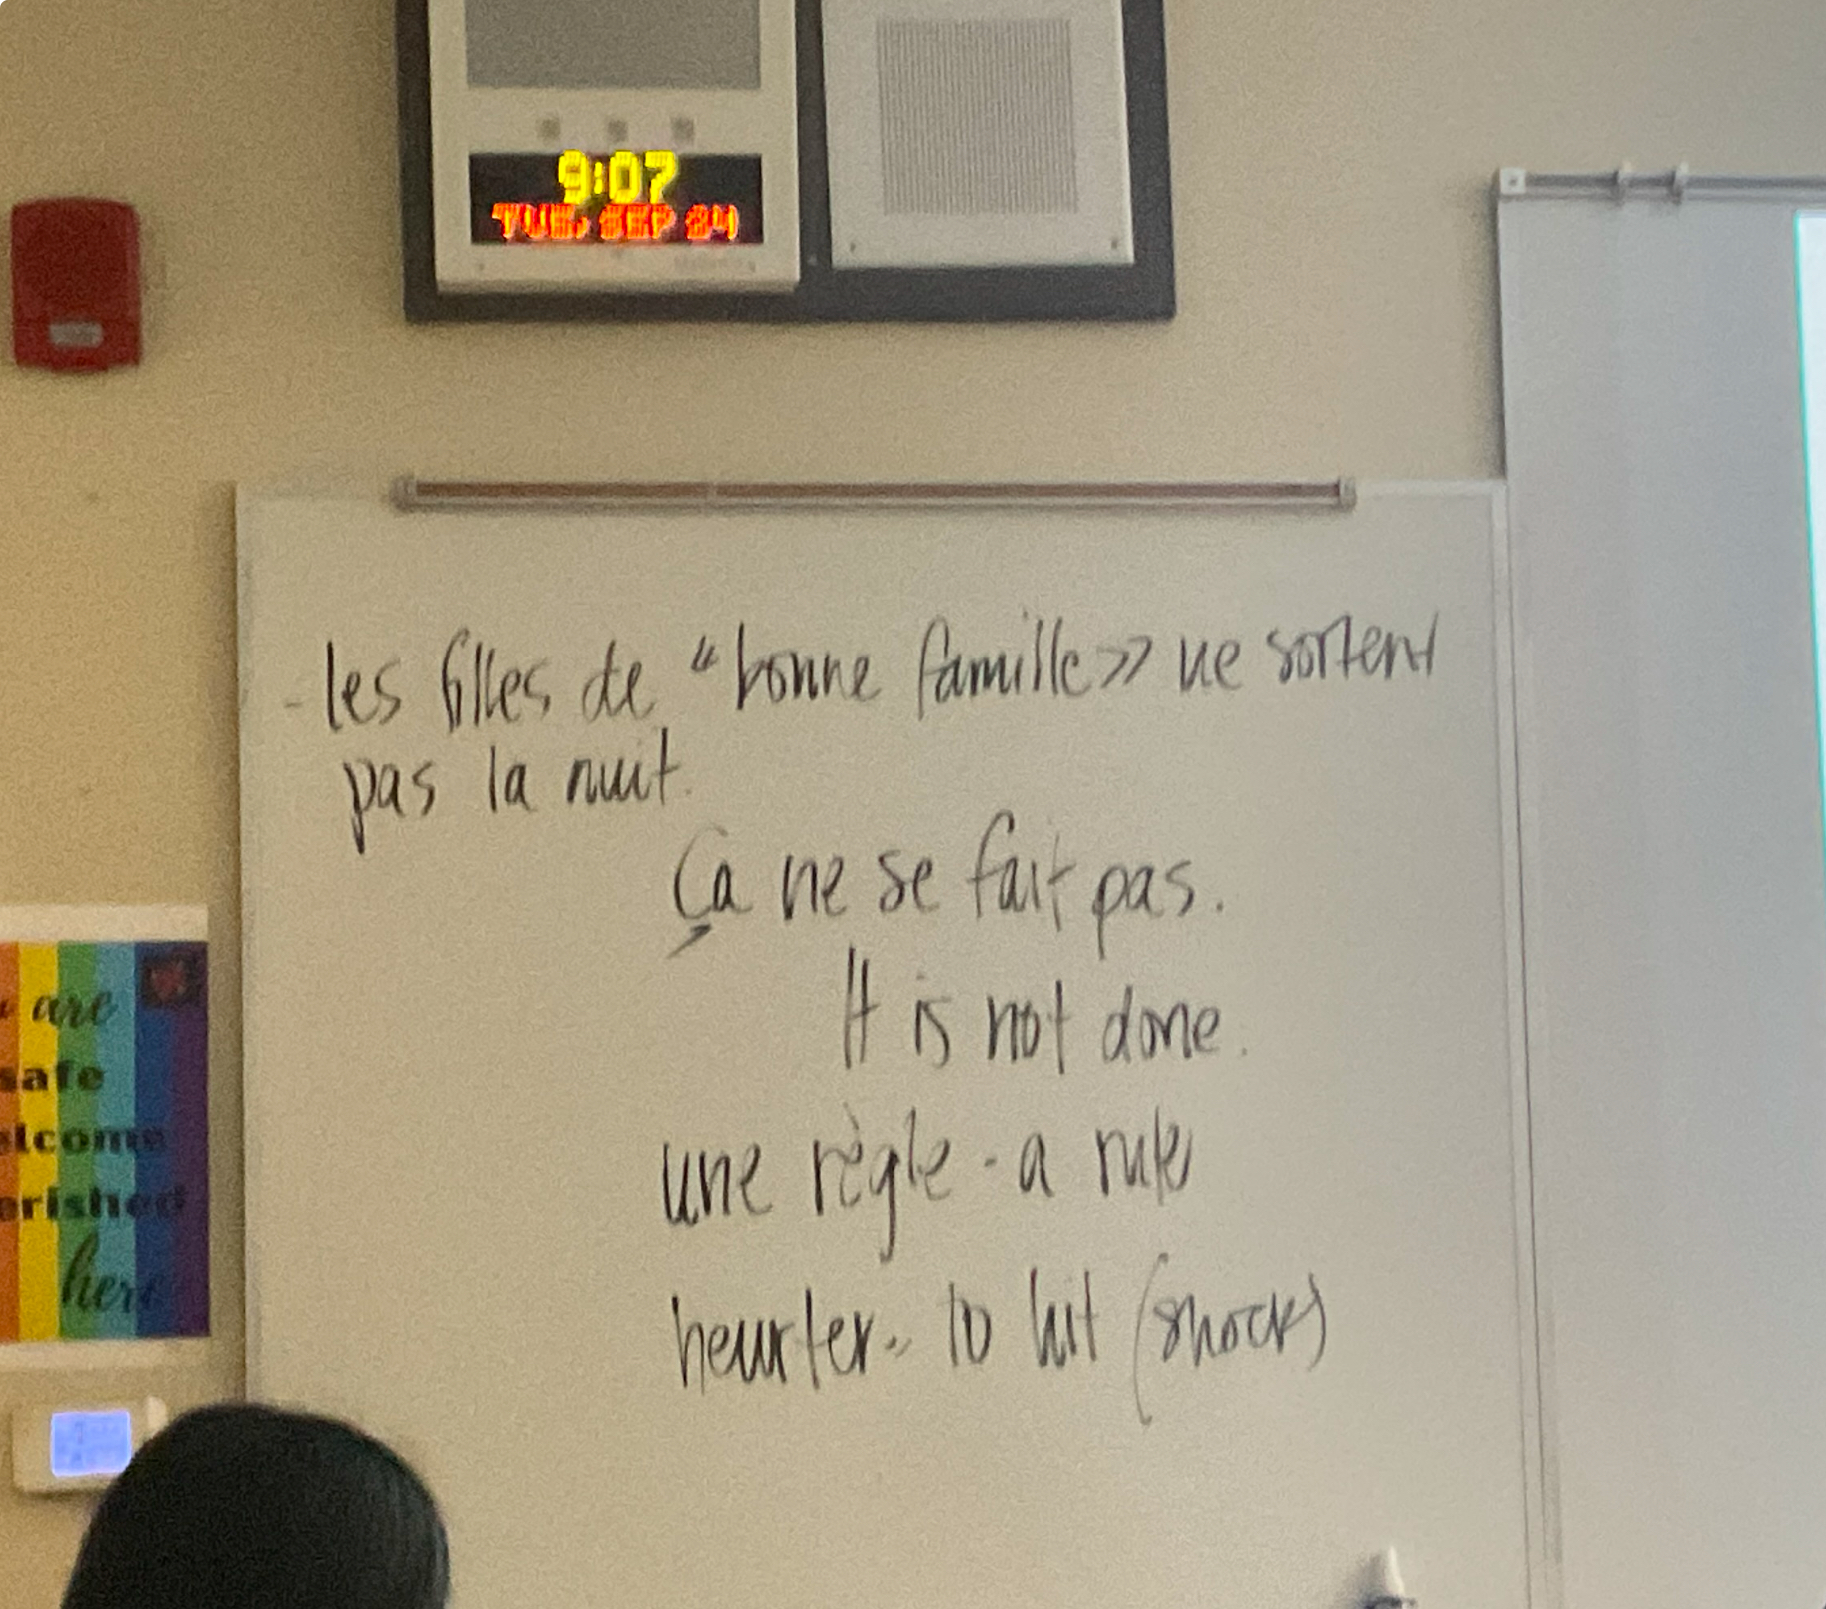 9:07
TUE, SEP 24
- les filles de "bonne famille>> ne sortent
pas la nuit.
Ça ne se fait pas.
It is not done.
une règle - a rule
heurter - to hit (shock)
are
safe
elcome
erished
here